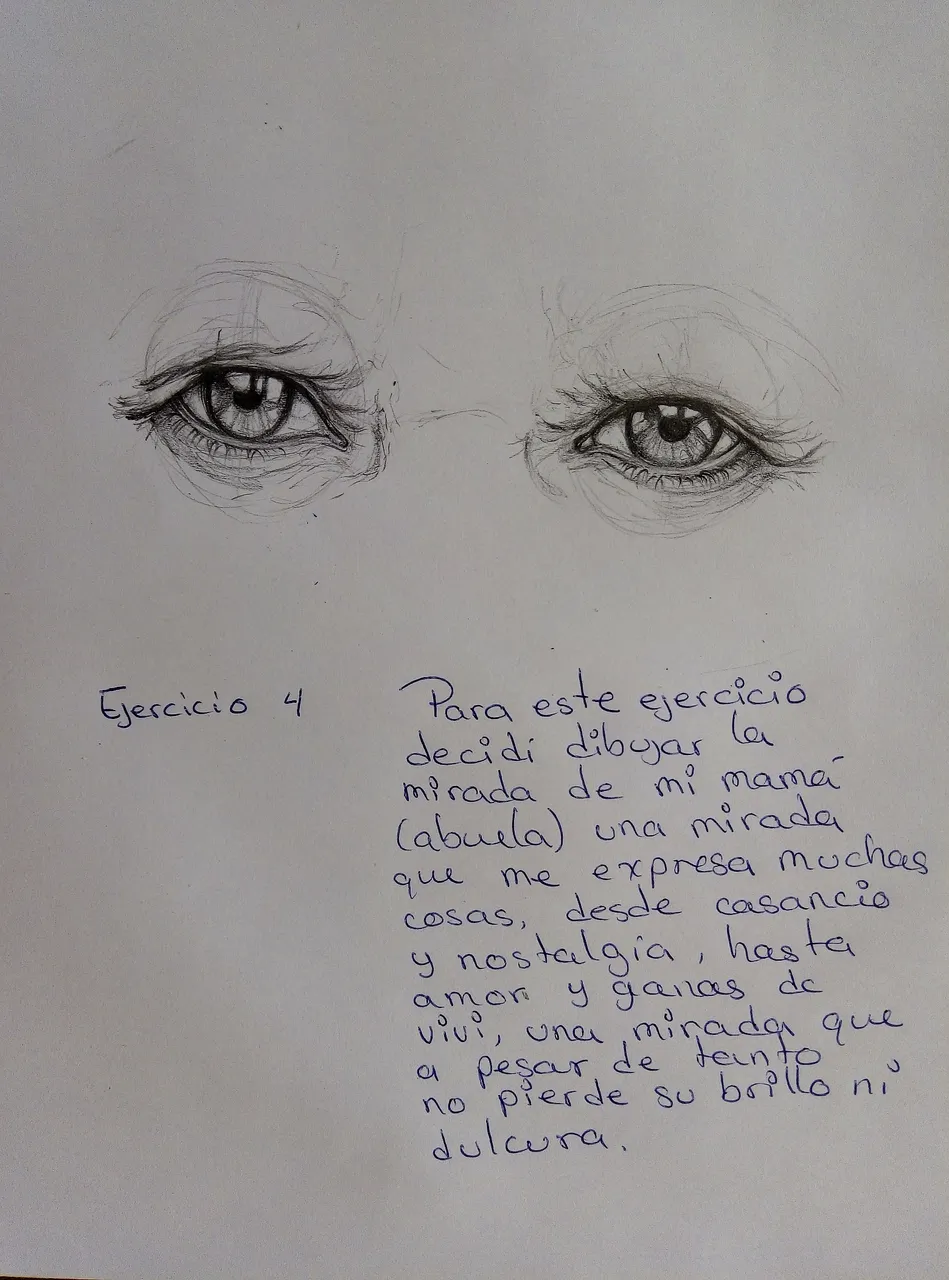 Ejercicio 4
Para este ejercicio
decidí dibujar la
mirada de mi mamá
(abuela) una mirada
que me expresa muchas
cosas, desde casancio
y nostalgia, hasta
amor y ganas de
vivi, una mirada que
a pesar de tanto
no pierde su brillo ni
dulcura.